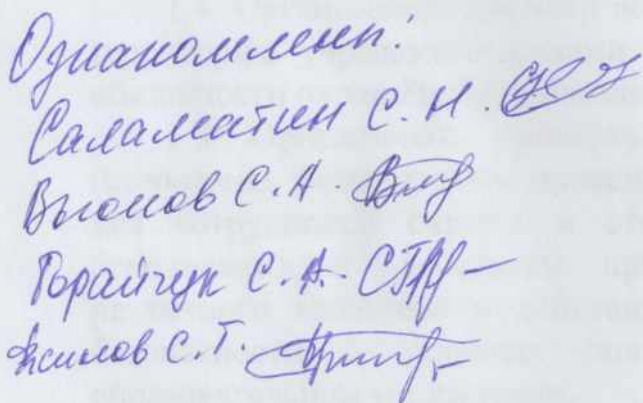 Ознакомлены:
Саламатин С. Н.
Вьюнов С. А.
Горайчук С. А.
С. Т.